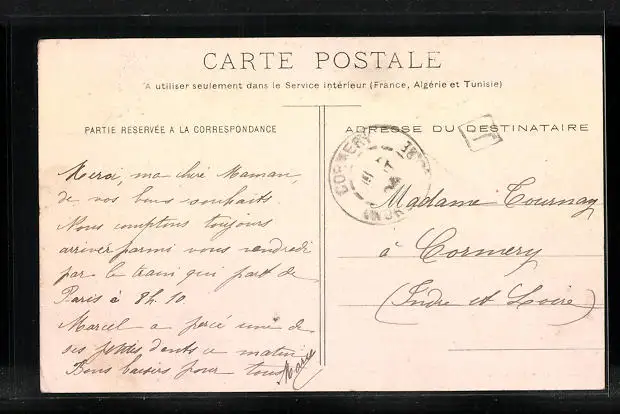 CARTE POSTALE
A utiliser seulement dans le Service intérieur (France, Algérie et Tunisie)
PARTIE RESERVÉE A LA CORRESPONDANCE
Merci, ma chère Maman,
de vos bons souhaits.
Nous comptons toujours
arriver parmi vous vendredi
par le train qui part de
Paris à 8h. 10
Marcel a percé une de
ses petites dents ce matin
Bons baisers pour tous
Marie
ADRESSE DU DESTINATAIRE
T
CORMERY
Madame Tournay
à Cormery
(Indre et Loire)